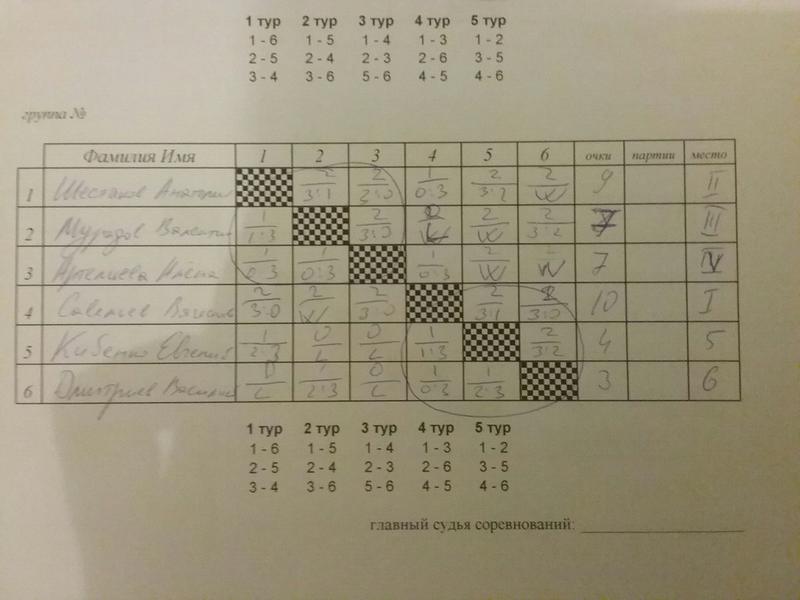 1 тур 2 тур 3 тур 4 тур 5 тур
1 - 6 1 - 5 1 - 4 1 - 3 1 - 2
2 - 5 2 - 4 2 - 3 2 - 6 3 - 5
3 - 4 3 - 6 5 - 6 4 - 5 4 - 6
группа №
Фамилия Имя 1 2 3 4 5 6 очки партии место
2 2 1 2 2
1 Шестаков Анатолий 9 II
3:1 3:0 0:3 3:2 W
1 2 2 2
2 Мурадов Валентин III
1:3 3:0 W 3:2
1 1 1 2
3 Алена 7 IV
0:3 0:3 0:3 W W
2 2 2 2 2
4 Савельев 10 I
3:0 W 3:0 3:1 3:0
1 0 0 1 2
5 Евгений 4 5
2:3 L L 1:3 3:2
0 1 0 1 1
6 Дмитриев Василий 3 6
L 2:3 L 0:3 2:3
1 тур 2 тур 3 тур 4 тур 5 тур
1 - 6 1 - 5 1 - 4 1 - 3 1 - 2
2 - 5 2 - 4 2 - 3 2 - 6 3 - 5
3 - 4 3 - 6 5 - 6 4 - 5 4 - 6
главный судья соревнований: